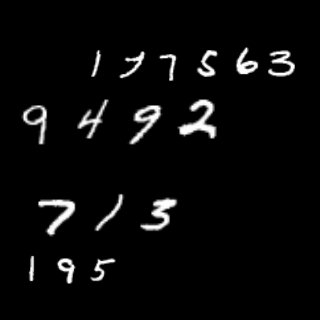 177563
9492
713
195